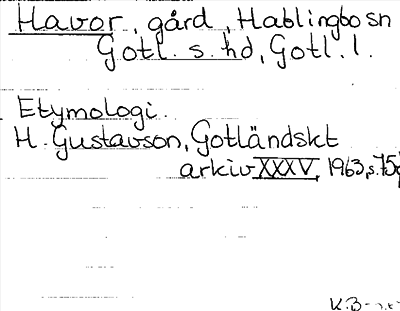 Havor, gård, Hablingbo sn
Gotl. s. hd, Gotl. l.
Etymologi.
H. Gustavson, Gotländskt
arkiv XXXV, 1963, s. 75
K.B-